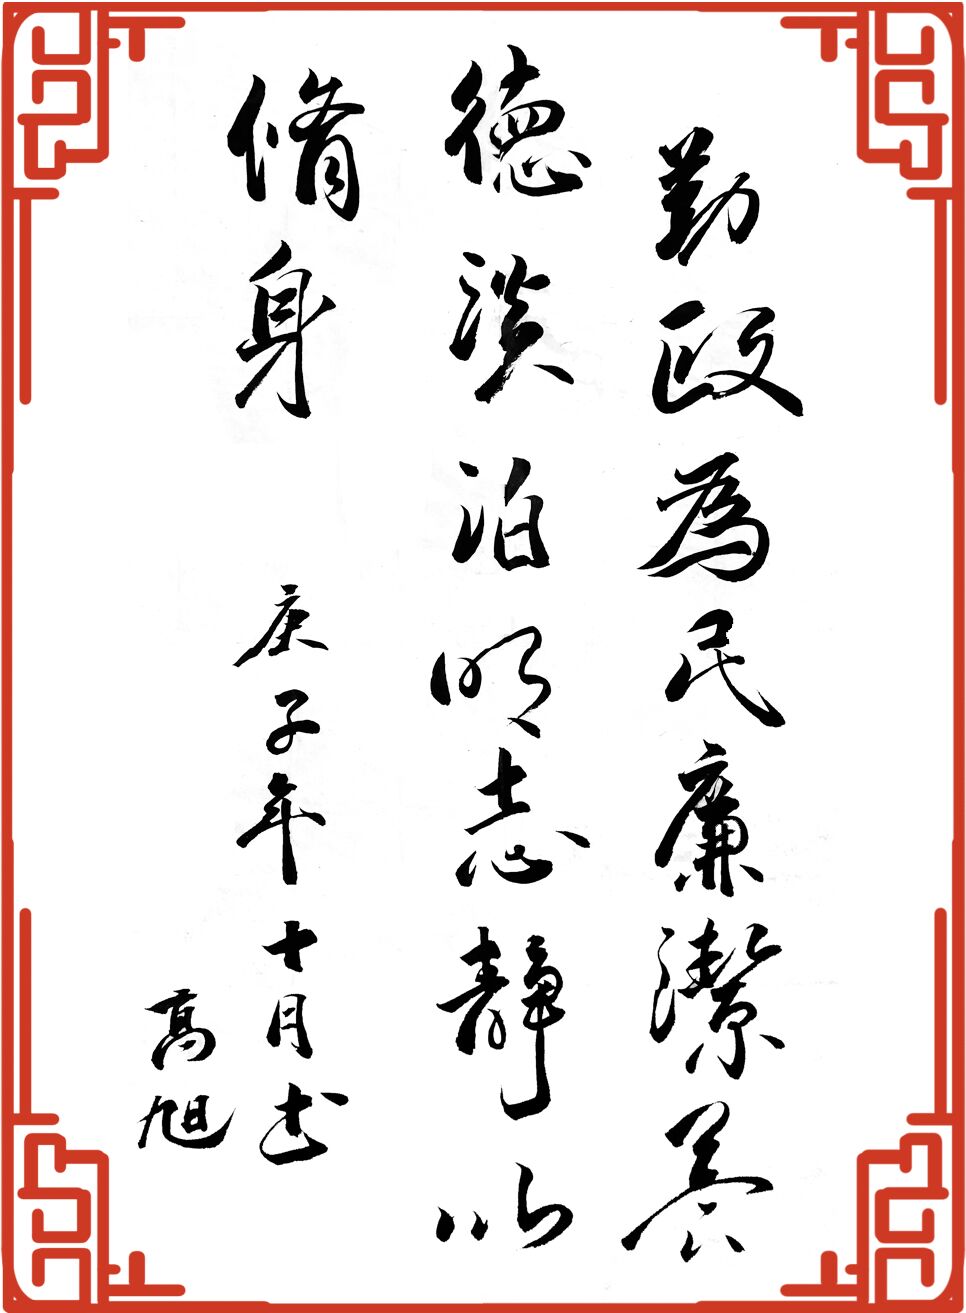 勤政為民廉潔養
德淡泊明志靜以
脩身
庚子年十月书
高旭